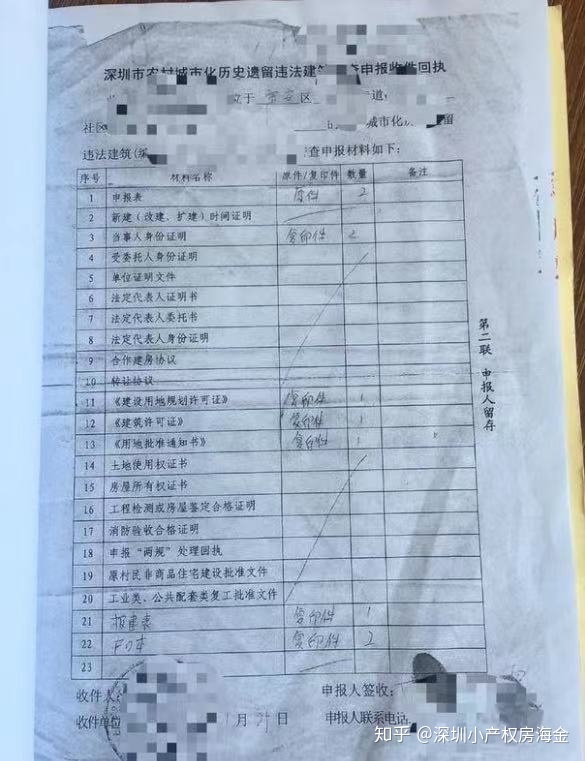 深圳市农村城市化历史遗留违法建筑 查申报收件回执
位于 宝安 区 道
社区 城市化 留
违法建筑( 查申报材料如下:
序号 材料名称 原件/复印件 数量 备注
1 申报表 原件 2
2 新建(改建、扩建)时间证明
3 当事人身份证明 复印件 2
4 受委托人身份证明
5 单位证明文件
6 法定代表人证明书
7 法定代表人委托书
8 法定代表人身份证明
9 合作建房协议
10 转让协议
11 《建设用地规划许可证》 复印件 1
12 《建筑许可证》 复印件 1
13 《用地批准通知书》 复印件 1
14 土地使用权证书
15 房屋所有权证书
16 工程检测或房屋鉴定合格证明
17 消防验收合格证明
18 申报“两规”处理回执
19 原村民非商品住宅建设批准文件
20 工业类、公共配套类复工批准文件
21 报建表 复印件 1
22 户口本 复印件 2
23
第二联 申报人留存
收件人 申报人签收:
收件单位 月 日 申报人联系电话
知乎 @深圳小产权房海金